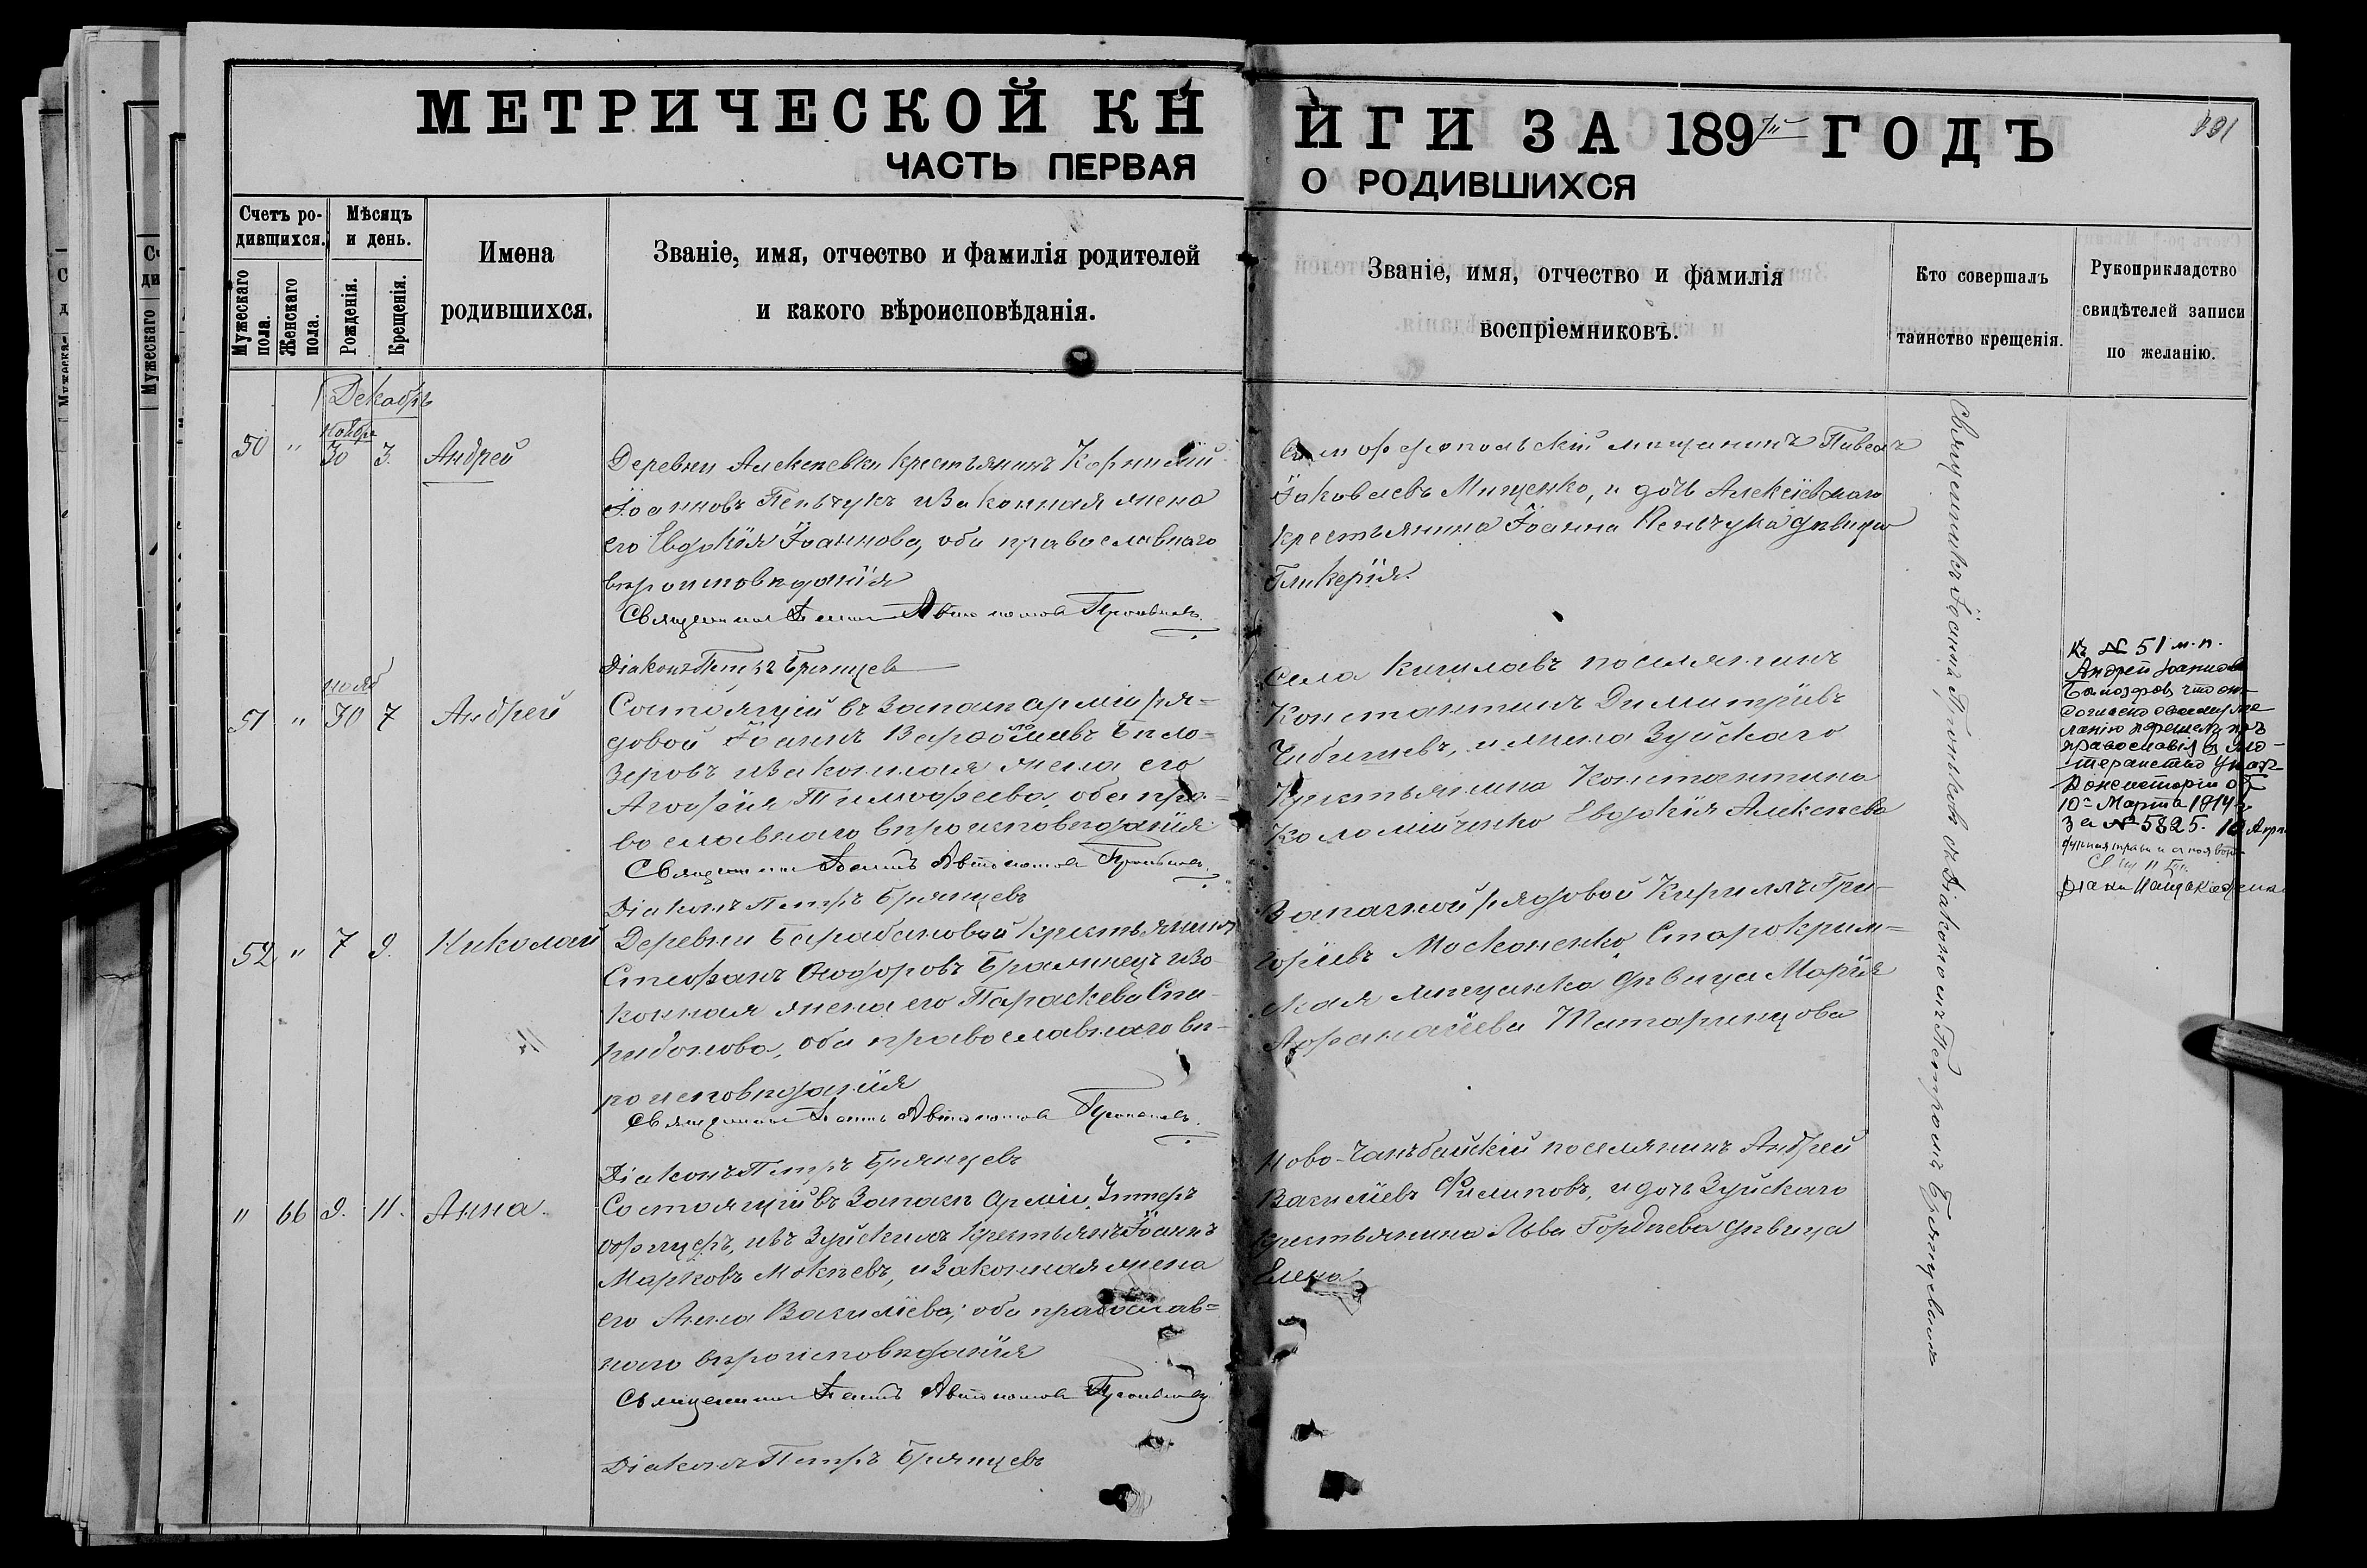 МЕТРИЧЕСКОЙ КН
ИГИ ЗА 189 ГОДЪ
ЧАСТЬ ПЕРВАЯ
О РОДИВШИХСЯ
Счетъ ро-
дившихся.
Мужескаго
пола.
Женскаго
пола.
Мѣсяцъ
и день.
Рожденія.
Крещенія.
Имена
родившихся.
Званіе, имя, отчество и фамилія родителей
и какого вѣроисповѣданія.
Званіе, имя, отчество и фамилія
воспріемниковъ.
Кто совершалъ
таинство крещенія.
Рукоприкладство
свидѣтелей записи
по желанію.
Декабрь
Ноябр
50 " 30 3. Андрей
Деревни Алексѣевки крестьянинъ Корнилій
Іоанновъ Пеньчукъ и законная жена
его Евдокія Іоаннова, оба православнаго
вѣроисповѣданія
Священникъ Іоаннъ Автономовъ
Діаконъ Петръ Брянцевъ
Симферопольскій мѣщанинъ Павелъ
Іаковлевъ Мищенко, и дочь Алексіевскаго
крестьянина Іоанна Пеньчука дѣвица
Гликерія.
нояб
51 " 30 7 Андрей
Состоящій въ запасѣ арміи ря-
довой Іоаннъ Варѳоломіевъ Бѣло-
зеровъ и законная жена его
Агаѳія Тимоѳеева, оба пра-
вославнаго вѣроисповѣданія
Священникъ Іоаннъ Автономовъ
Діаконъ Петръ Брянцевъ
Села поселянинъ
Константинъ Димитріевъ
и жена Зуйскаго
крестьянина Константина
Коломійченко Евдокія Алексѣева
Къ № 51 м. п.
Андрей Іоаннов
Бѣлозеровъ что онъ
согласно своему же-
ланію перешелъ изъ
православія въ лю-
теранство Указ
Консисторіи отъ
10 Марта 1914 г.
За № 5825.
52 " 7 9. Николай
Деревни Барабановой крестьянинъ
Стефанъ Ѳеодоровъ и за-
конная жена его Параскева Спи-
ридонова, оба православнаго вѣ-
роисповѣданія
Священникъ Іоаннъ Автономовъ
Діаконъ Петръ Брянцевъ
Запасной рядовой Кириллъ Гри-
горіевъ Московенко, Старокрым-
ская мѣщанка дѣвица Марія
Аѳанасіева Татаринцова
" 66 9. 11. Анна.
Состоящій въ запасѣ арміи, Унтеръ
офицеръ, изъ Зуйскихъ крестьянъ Іоаннъ
Марковъ Мокѣевъ, и законная жена
его Анна Василіева, оба православ-
наго вѣроисповѣданія
Священникъ Іоаннъ Автономовъ
Діаконъ Петръ Брянцевъ
Ново-Чанъбайскій поселянинъ Андрей
Василіевъ Филиповъ, и дочь Зуйскаго
крестьянина Льва Гордѣева дѣвица
Елена
Священникъ Іоаннъ съ Діакономъ Петромъ Брянцевымъ